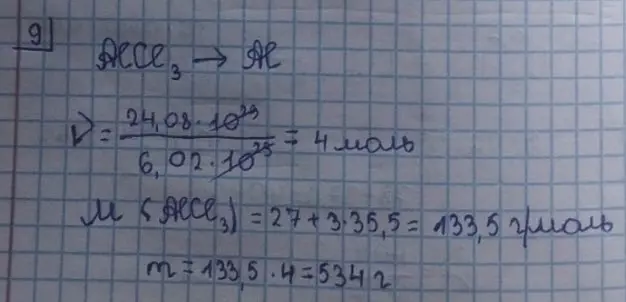 9
AlCl₃ → Al
ν = 24,08·10²³ / 6,02·10²³ = 4 моль
M (AlCl₃) = 27 + 3·35,5 = 133,5 г/моль
m = 133,5 · 4 = 534 г